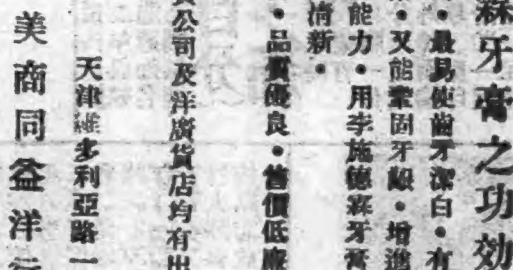 霖牙膏之功効
・最易使齒牙潔白・有
・又能鞏固牙齦・增進
能力・用李施德霖牙膏
清新・
・品質優良・售價低廉
公司及洋廣貨店均有出
天津維多利亞路一
美商同益洋行